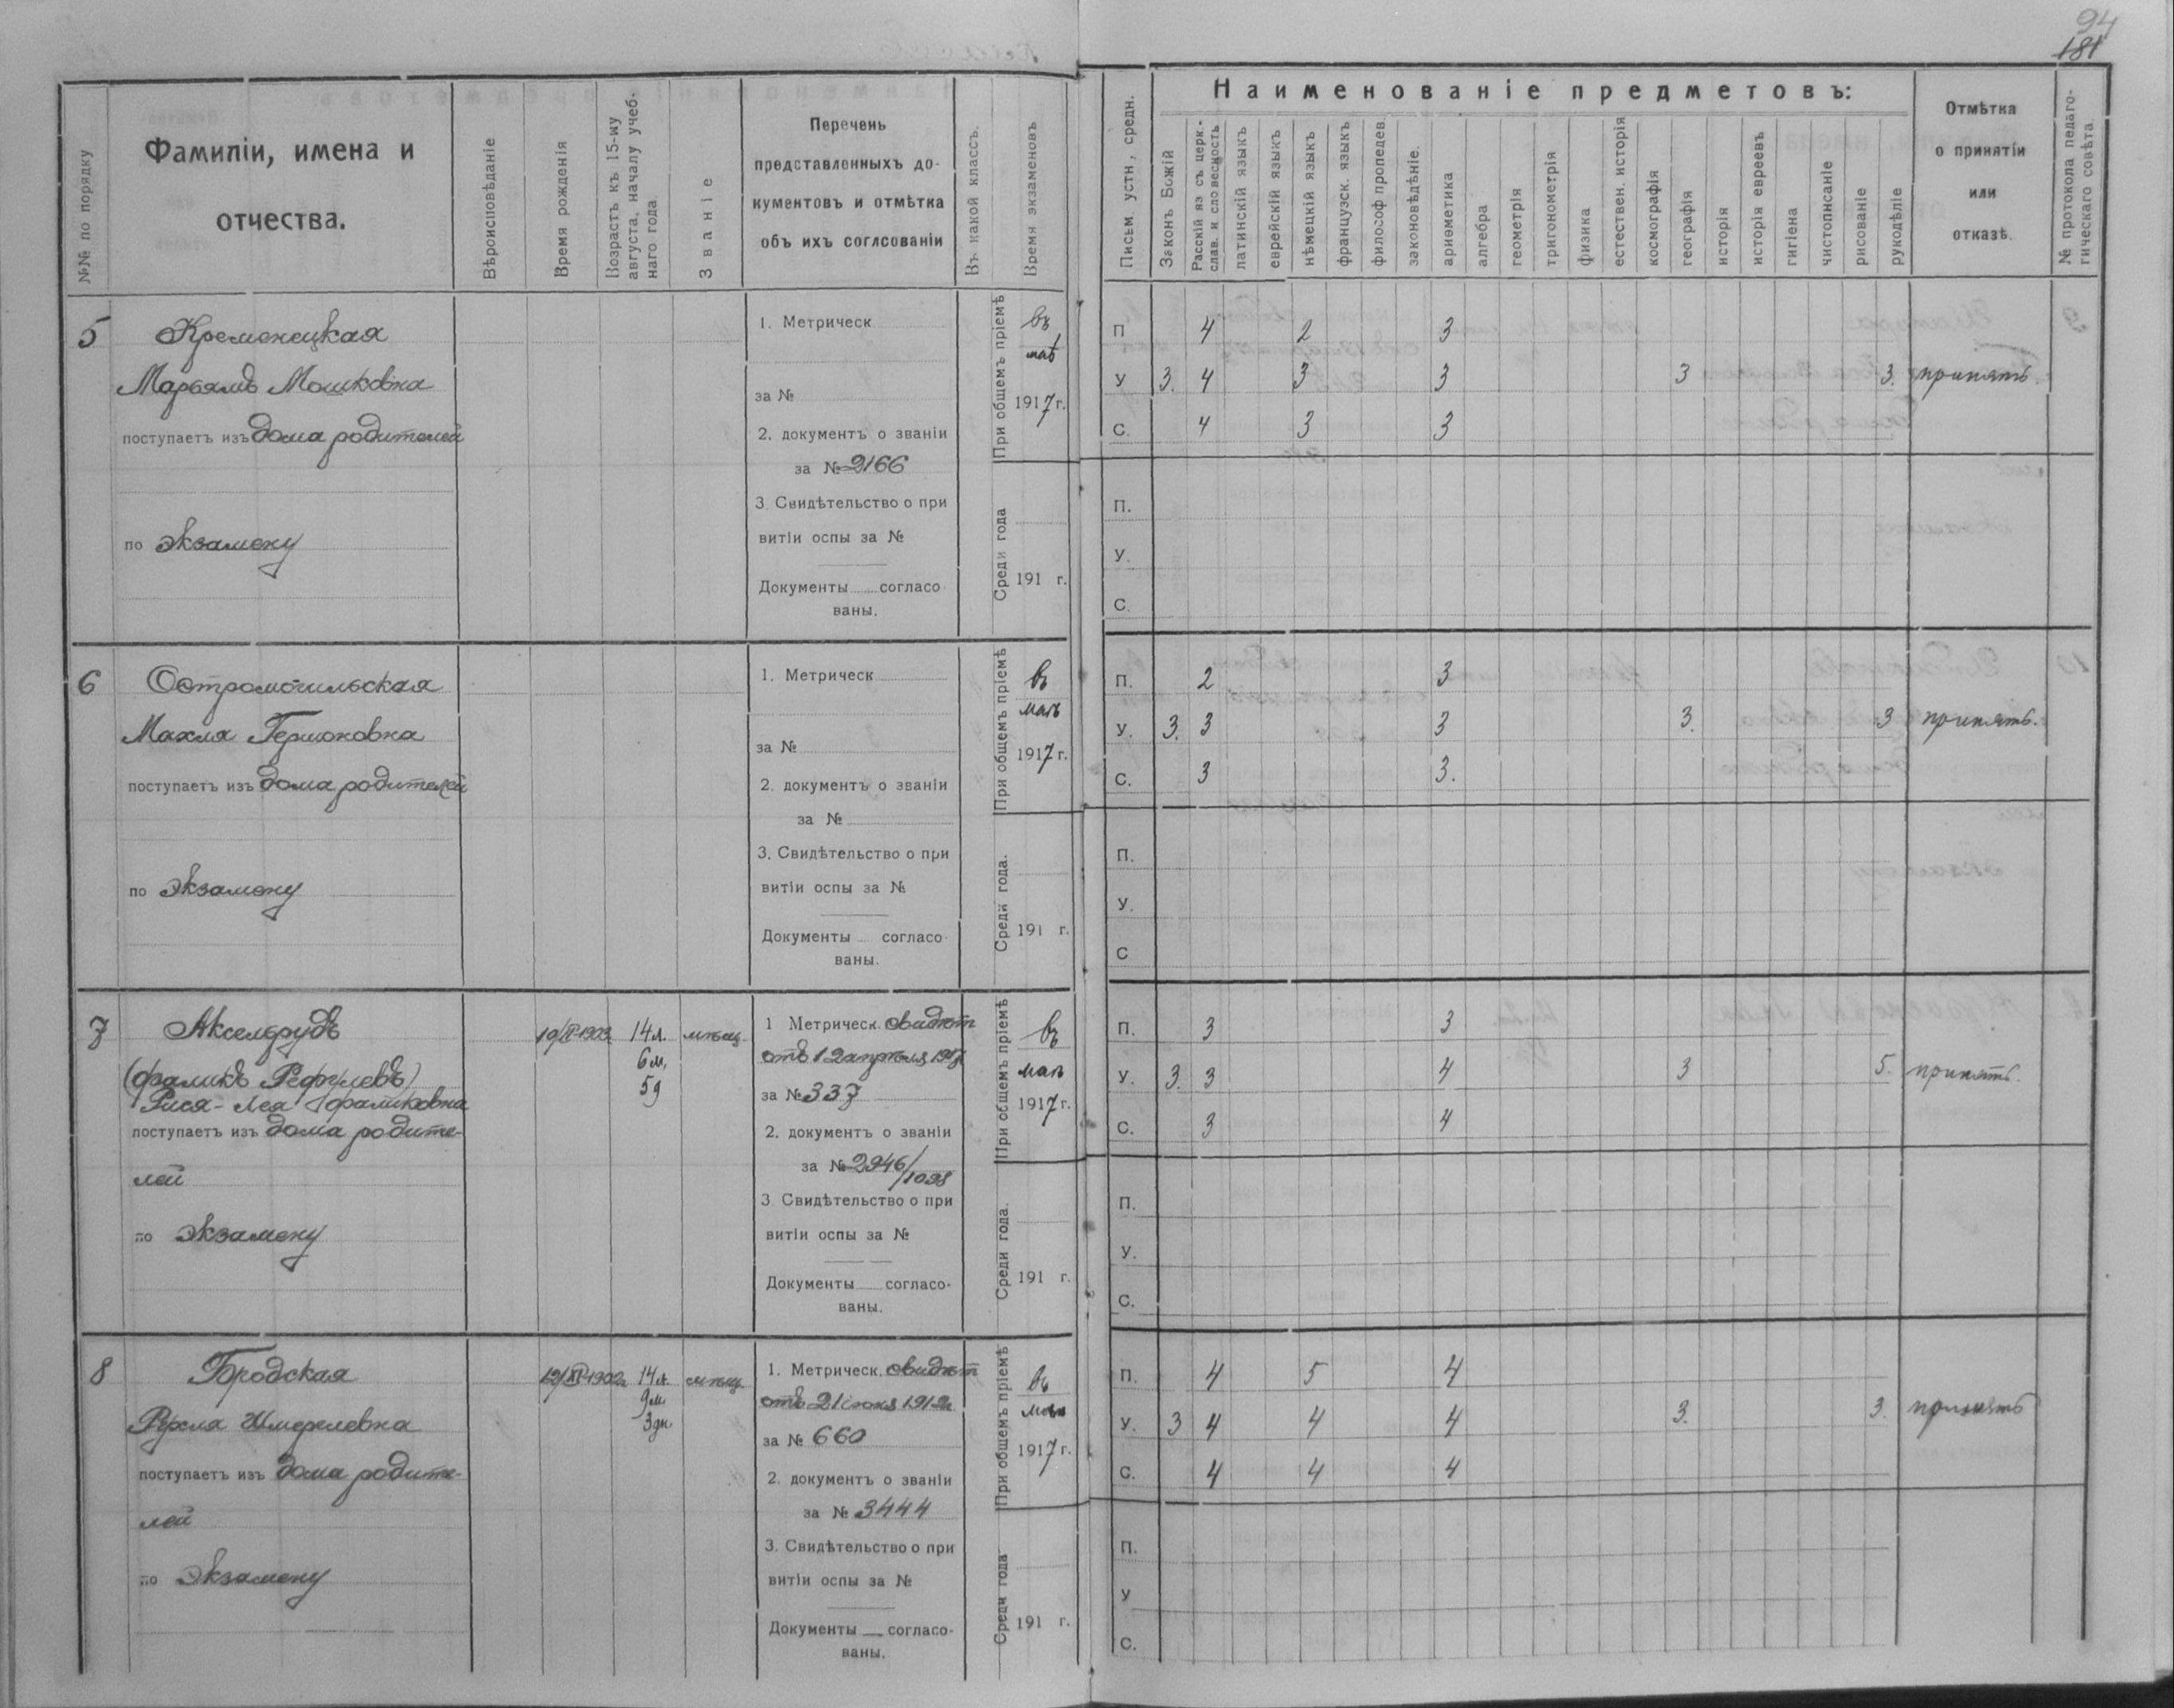 94
181
№№ по порядку
Фамиліи, имена и
отчества.
Вѣроисповѣданіе
Время рожденія
Возрастъ къ 15-му
августа, началу учеб-
наго года.
Званіе
Перечень
представленныхъ до-
кументовъ и отмѣтка
объ ихъ соглсованіи
Въ какой классъ.
Время экзаменовъ
Письм. устн., средн.
Наименованіе предметовъ:
Законъ Божій
Расскій яз съ церк.-
слав. и словесность
латинскій языкъ
еврейскій языкъ
нѣмецкій языкъ
французск. языкъ
философ пропедев.
законовѣдѣніе.
ариѳметика
алгебра
геометрія
тригонометрія
физика
естествен. исторія
космографія
географія
исторія
исторія евреевъ
гигіена
чистописаніе
рисованіе
рукодѣліе
Отмѣтка
о принятіи
или
отказѣ.
№ протокола педаго-
гическаго совѣта.
5
Кременецкая
Марьямъ Мошковна
поступаетъ изъ дома родителей
по экзамену
1. Метрическ
за №
2. документъ о званіи
за № 2166
3. Свидѣтельство о при
витіи оспы за №
Документы согласо
ваны.
При общемъ пріемѣ
въ
маѣ
1917 г.
Среди года
191 г.
П 4 2 3
У 3. 4 3 3 3 3. принять.
С. 4 3 3
П.
У.
С.
6
Остромогильская
Махля Гершоновна
поступаетъ изъ дома родителей
по экзамену
1. Метрическ
за №
2. документъ о званіи
за №
3. Свидѣтельство о при
витіи оспы за №
Документы согласо-
ваны.
При общемъ пріемѣ
въ
маѣ
1917 г.
Среди года.
191 г.
П. 2 3
У. 3. 3 3 3. 3 принять.
С. 3 3.
П.
У.
С
7
Аксельрудъ
Рися-Лея
поступаетъ изъ дома родите-
лей
по экзамену
14 л.
6 м.
5 д
мѣщ.
1 Метрическ. свидѣт
отъ 12 апрѣля
за № 337
2. документъ о званіи
за № 2946/1098
3. Свидѣтельство о при
витіи оспы за №
Документы согласо-
ваны.
При общемъ пріемѣ
въ
маѣ
1917 г.
Среди года.
191 г.
П. 3 3
У. 3. 3 4 3 5. принять.
С. 3 4
П.
У.
С.
8
Бродская
Рухля Шмерелевна
поступаетъ изъ дома родите-
лей
по экзамену
14 л.
9 м.
3 дн.
мѣщ.
1. Метрическ. свидѣт
отъ 21 іюня 1912 г
за № 660
2. документъ о званіи
за № 3444
3. Свидѣтельство о при
витіи оспы за №
Документы согласо-
ваны.
При общемъ пріемѣ
въ
маѣ
1917 г.
Среди года
191 г.
П. 4 5 4
У. 3 4 4 4 3. 3. принять
С. 4 4 4
П.
У
С.